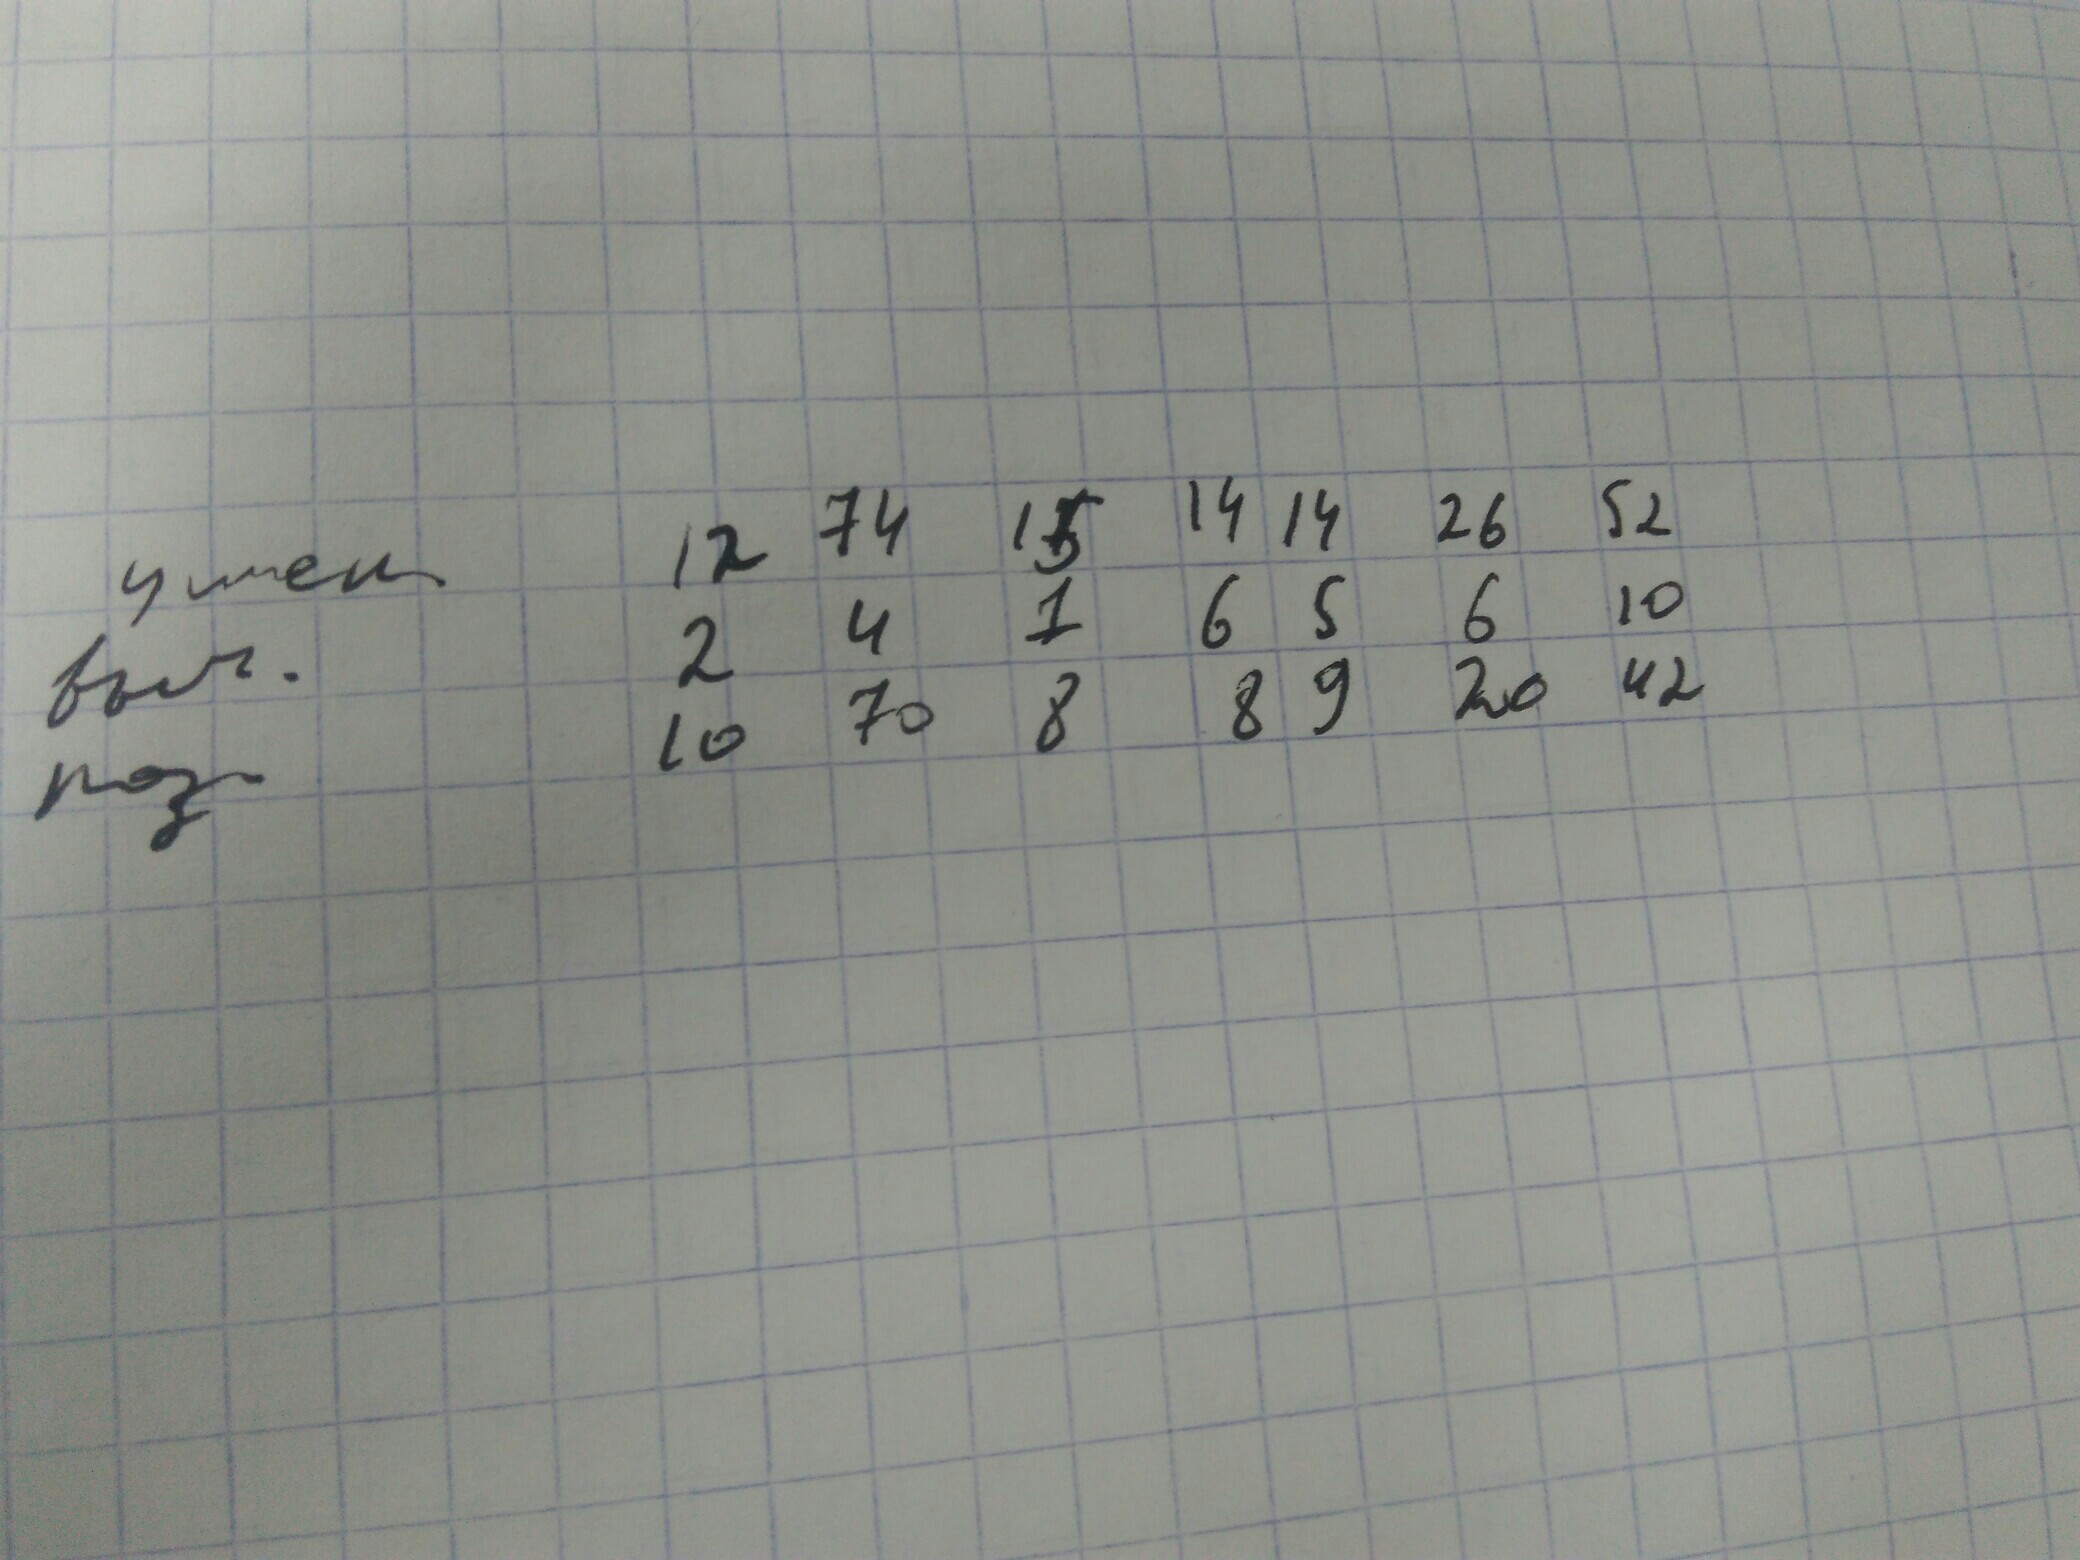 умен 12 74 15 14 14 26 52
выч. 2 4 1 6 5 6 10
раз 10 70 8 8 9 20 42